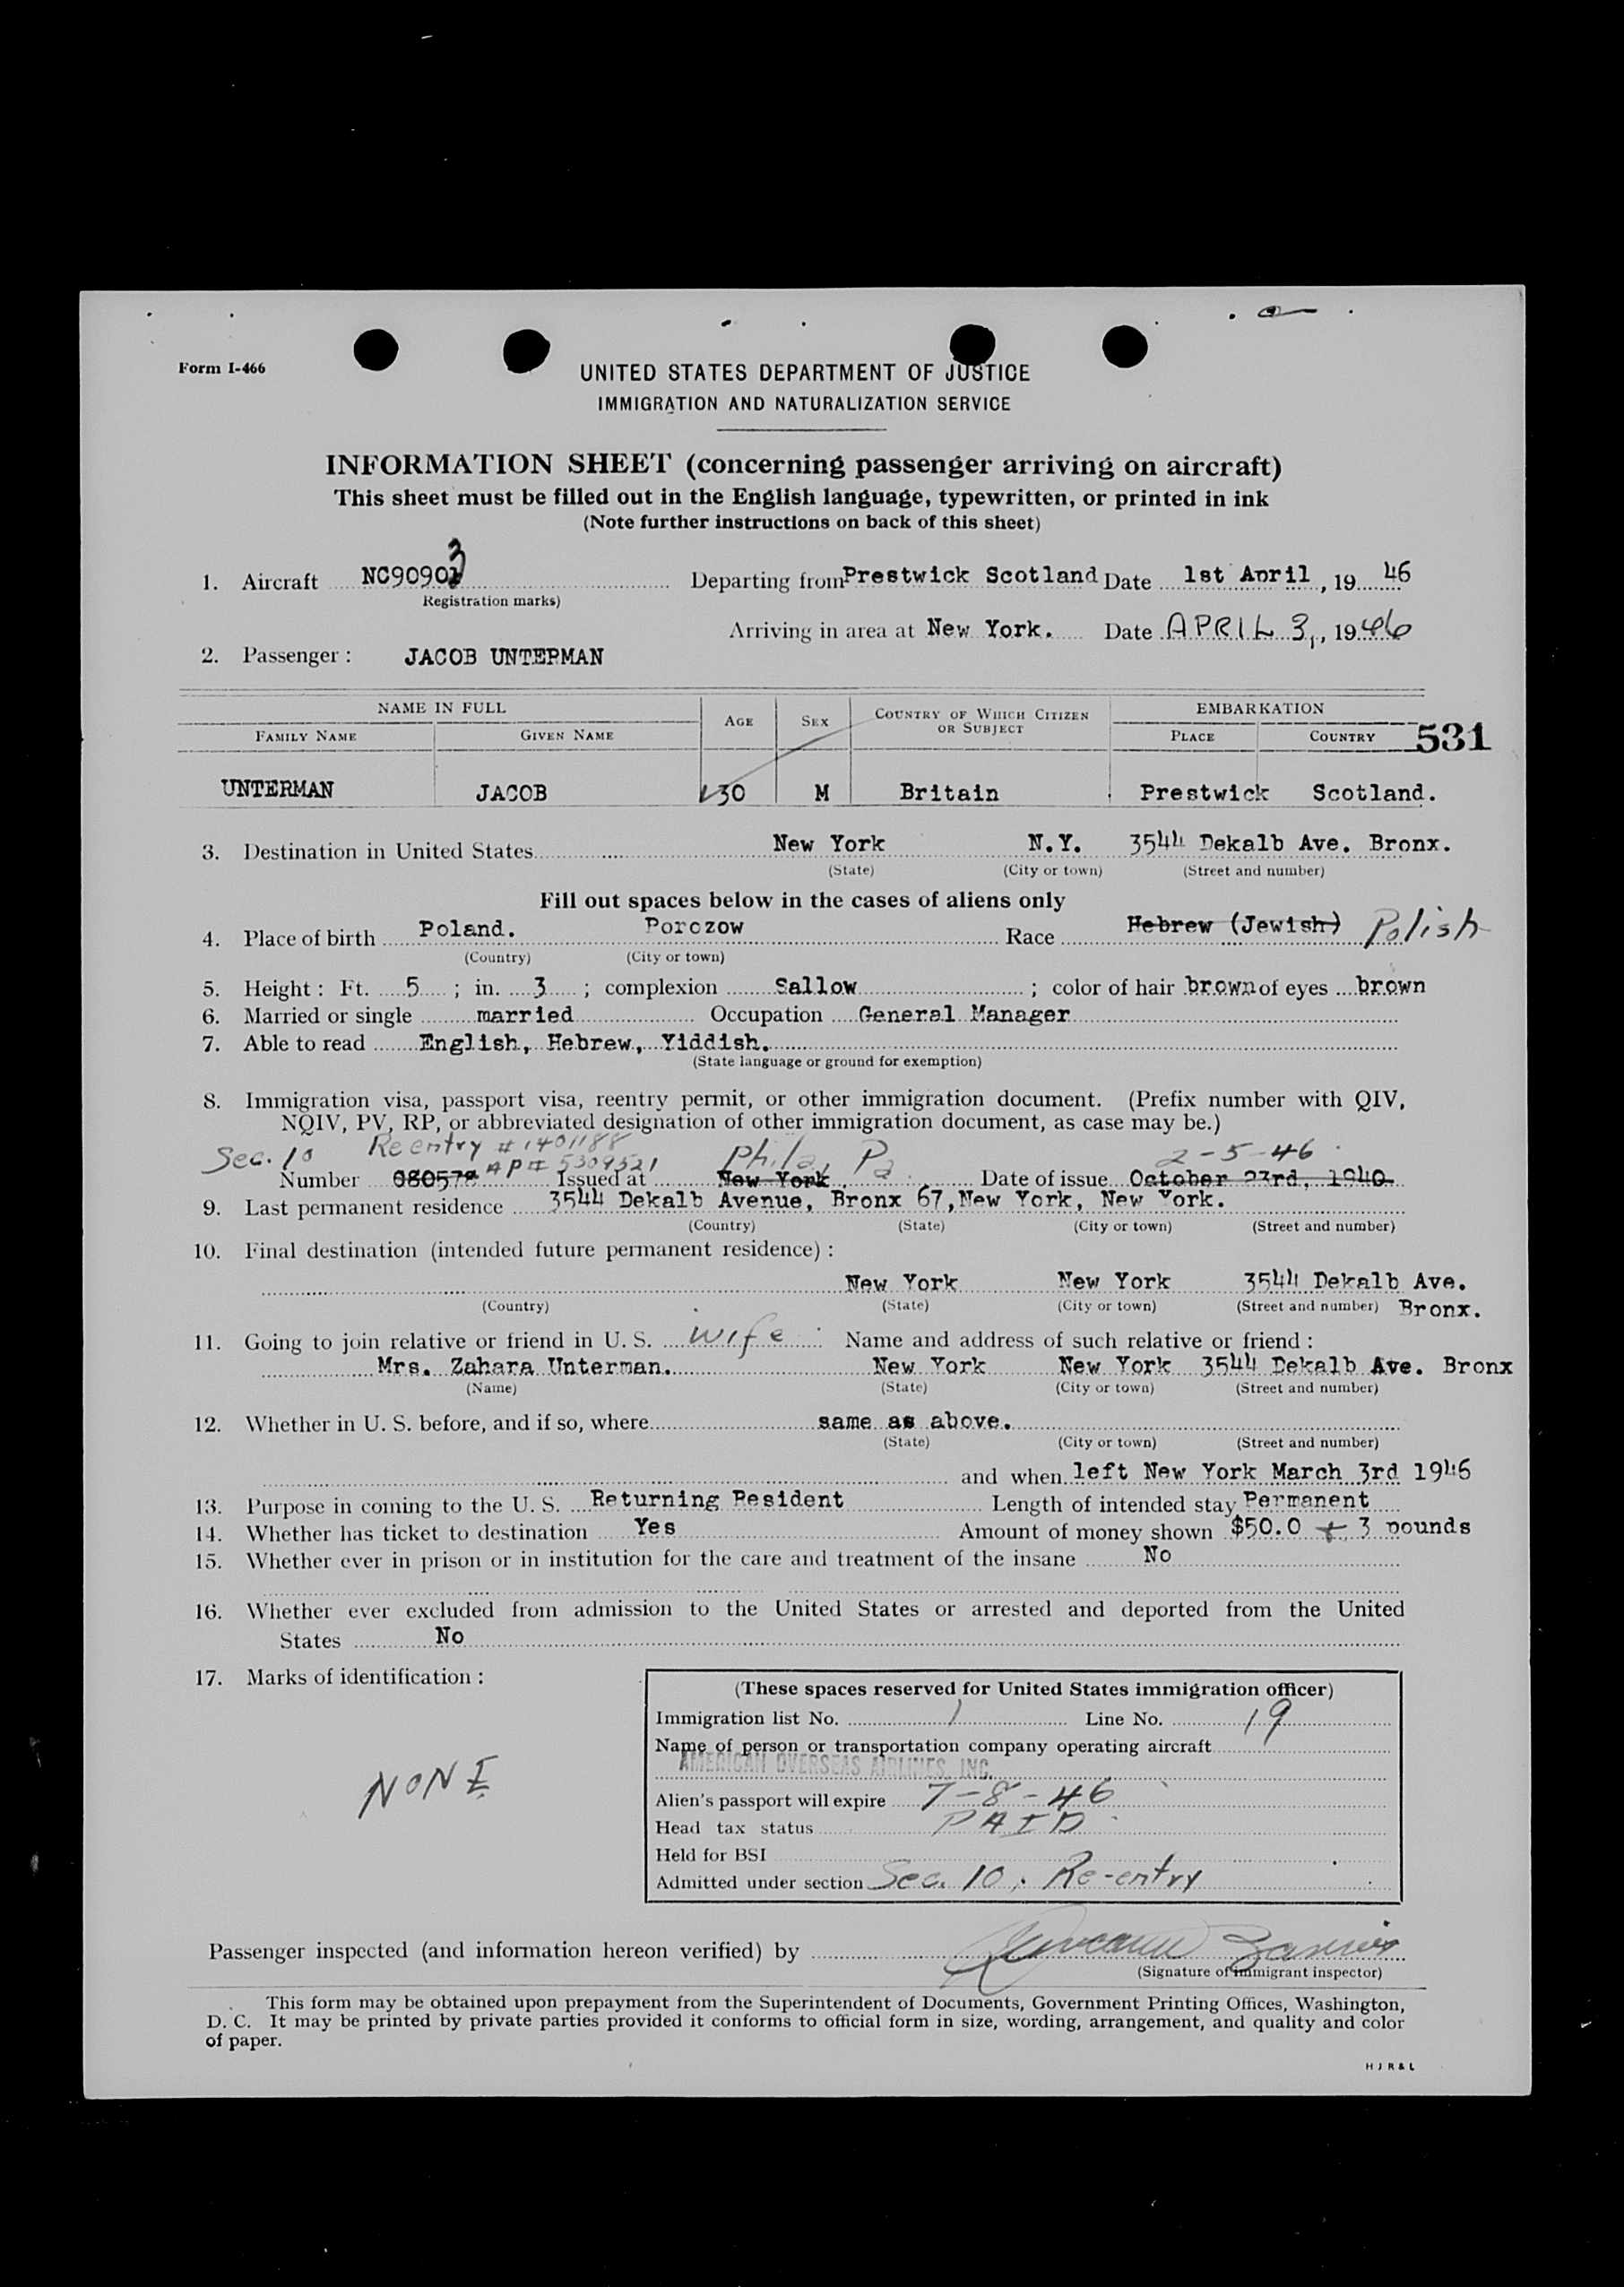 Form I-466
UNITED STATES DEPARTMENT OF JUSTICE
IMMIGRATION AND NATURALIZATION SERVICE
INFORMATION SHEET (concerning passenger arriving on aircraft)
This sheet must be filled out in the English language, typewritten, or printed in ink
(Note further instructions on back of this sheet)
1. Aircraft NC90903 Departing from Prestwick Scotland Date 1st April, 19 46
Registration marks)
Arriving in area at New York. Date APRIL 3, 1946
2. Passenger : JACOB UNTERMAN
NAME IN FULL AGE SEX COUNTRY OF WHICH CITIZEN OR SUBJECT EMBARKATION
FAMILY NAME GIVEN NAME PLACE COUNTRY 531
UNTERMAN JACOB 30 M Britain Prestwick Scotland.
3. Destination in United States New York N.Y. 3544 Dekalb Ave. Bronx.
(State) (City or town) (Street and number)
Fill out spaces below in the cases of aliens only
4. Place of birth Poland. Porozow Race Hebrew (Jewish) Polish
(Country) (City or town)
5. Height : Ft. 5 ; in. 3 ; complexion Sallow ; color of hair brown of eyes brown
6. Married or single married Occupation General Manager
7. Able to read English, Hebrew, Yiddish.
(State language or ground for exemption)
8. Immigration visa, passport visa, reentry permit, or other immigration document. (Prefix number with QIV,
NQIV, PV, RP, or abbreviated designation of other immigration document, as case may be.)
Sec. 10 Reentry # 1401188 Phila, Pa 2-5-46
Number AP# 5309521 Issued at New York Date of issue October 23rd, 1940
9. Last permanent residence 3544 Dekalb Avenue, Bronx 67, New York, New York.
(Country) (State) (City or town) (Street and number)
10. Final destination (intended future permanent residence) :
New York New York 3544 Dekalb Ave.
(Country) (State) (City or town) (Street and number) Bronx.
11. Going to join relative or friend in U. S. Wife Name and address of such relative or friend :
Mrs. Zahara Unterman. New York New York 3544 Dekalb Ave. Bronx
(Name) (State) (City or town) (Street and number)
12. Whether in U. S. before, and if so, where same as above.
(State) (City or town) (Street and number)
and when left New York March 3rd 1946
13. Purpose in coming to the U. S. Returning Resident Length of intended stay Permanent
14. Whether has ticket to destination Yes Amount of money shown $50.0 + 3 pounds
15. Whether ever in prison or in institution for the care and treatment of the insane No
16. Whether ever excluded from admission to the United States or arrested and deported from the United
States No
17. Marks of identification :
NONE
(These spaces reserved for United States immigration officer)
Immigration list No. 1 Line No. 19
Name of person or transportation company operating aircraft
AMERICAN OVERSEAS AIRLINES, INC.
Alien's passport will expire 7-8-46
Head tax status PAID
Held for BSI
Admitted under section Sec. 10, Re-entry
Passenger inspected (and information hereon verified) by
(Signature of immigrant inspector)
This form may be obtained upon prepayment from the Superintendent of Documents, Government Printing Offices, Washington,
D. C. It may be printed by private parties provided it conforms to official form in size, wording, arrangement, and quality and color
of paper.
H J R & L